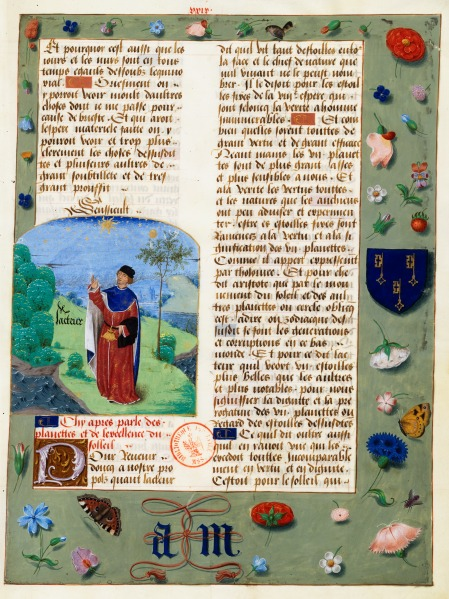 Et pourquoi cest aussi que les
iours et les nuis sont en tous
temps egauls dessoubs lequinno
cial.
y porroit veoir moult daultres
choses dont ie me passe pour
cause de briefte. Et qui aroit
lespere materiele faitte on y
porroit veoir et trop plus
clerement les choses dessusdi
tes et plusieurs aultres de
grant soubtillete et de tres
grant prouffit
lacteur
Chy apres parle des
planettes et de lexcellence du
soleil
Pour Reuenir
doncq a nostre pro
pos quant lacteur
dit quil vit tant destoilles ento
la face et le chief de nature que
nul viuant ne le peust nom
brer. il le disoit pour les estoil
les fixes de la viije espere qui
sont selonc la verite ahomme
innumerables. Et com
bien quelles soient toutes de
grant vertu et de grant efficace
Neant mains les vij planet
tes sont de plus grant
et plus sensibles a nous. Et
a la verite les vertus toutes
et les natures que les anchiens
ont peu aduiser et experimen
ter estre es estoilles fixes sont
a la vertu et a la si
gnification des vij planettes
Comme il appert expressement
par tholomee. Et pour che
dit aristote que par le mou
uement du soleil et des aul
tres planetes ou cercle obliq
cest adire ou zodiacque des
susdit se font les generations
et corruptions en ce bas
monde. Et pour ce dit lac
teur quil veoit vij estoilles
plus belles que les aultres
et plus notables. pour nous
signiffier la dignite et la pre
rogatiue des vij planettes ou
regard des estoilles dessusdites
Ce quil dit oultre aussi
quil en raioit vne au les
toutes Incomparable
ment en vertu et en dignite
Cestoit pour le soleil qui
a m